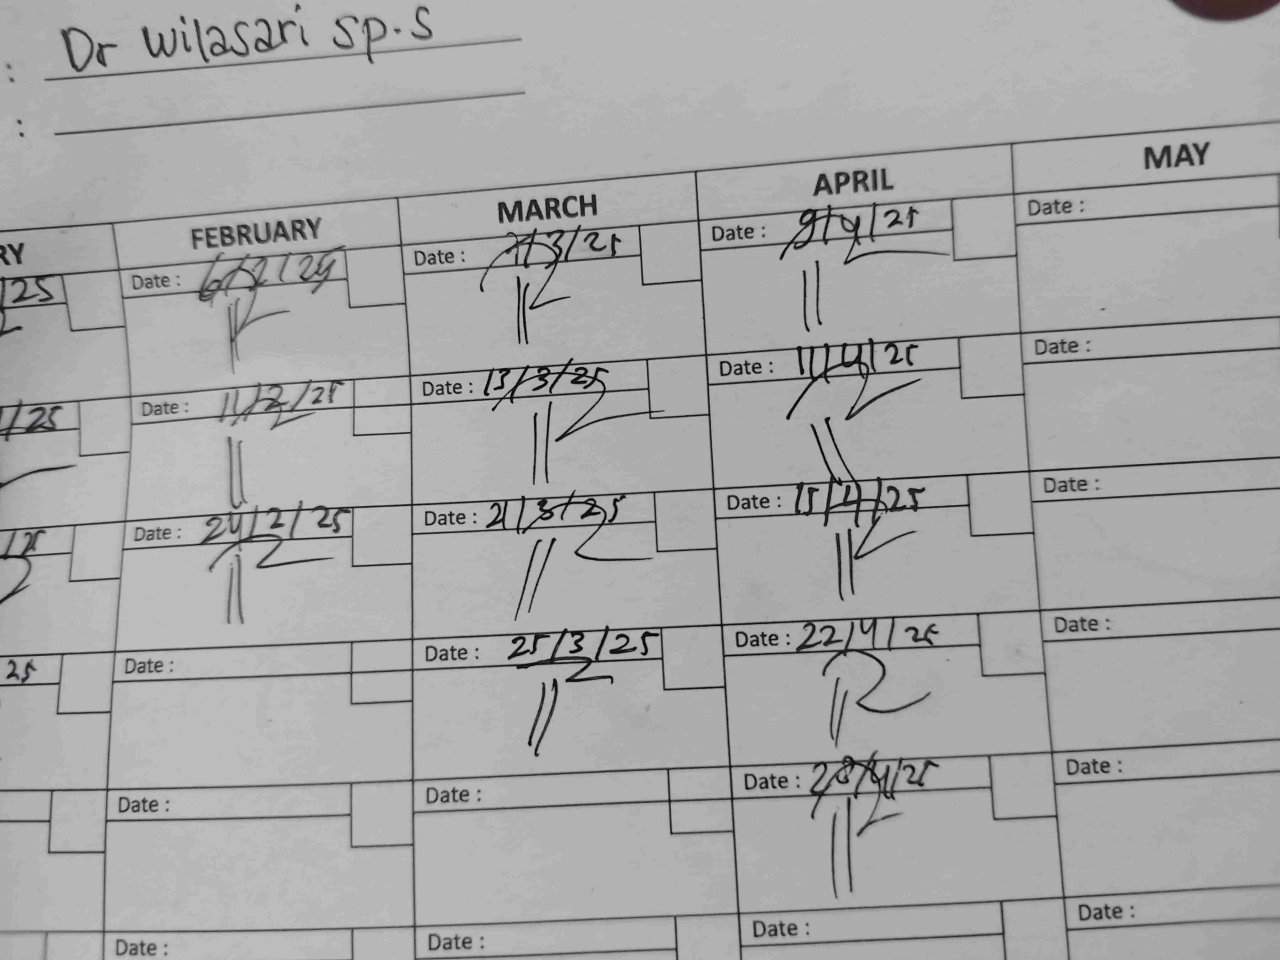 : Dr wilasari sp.s
:
RY FEBRUARY MARCH APRIL MAY
/25 Date : 6/2/25 Date : 7/3/25 Date : 9/4/25 Date :
/25 Date : 11/2/25 Date : 13/3/25 Date : 11/4/25 Date :
/25 Date : 24/2/25 Date : 21/3/25 Date : 15/4/25 Date :
25 Date : Date : 25/3/25 Date : 22/4/25 Date :
Date : Date : Date : 28/4/25 Date :
Date : Date : Date : Date :